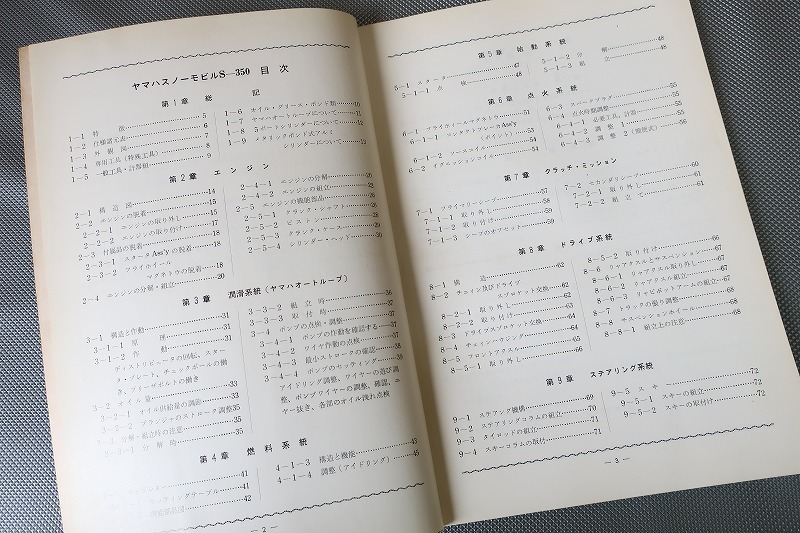 ヤマハスノーモビルS—350 目次
第1章 総記
1—1 特 徴 5
1—2 仕様諸元表 6
1—3 外観図 7
1—4 専用工具(特殊工具) 8
1—5 一般工具・計器類 9
1—6 オイル・グリース・ボンド類 10
1—7 ヤマハオートループについて 11
1—8 5ポートシリンダーについて 12
1—9 メタリックボンド式アルミ
シリンダーについて 13
第2章 エンジン
2—1 構造図 14
2—2 エンジンの脱着 15
2—2—1 エンジンの取り外し 15
2—2—2 エンジンの取り付け 17
2—3 付属品の脱着 18
2—3—1 スタータAss'yの脱着 18
2—3—2 フライホイール
マグネトウの脱着 18
2—4 エンジンの分解・組立 20
2—4—1 エンジンの分解 20
2—4—2 エンジンの組立
2—5 エンジンの機能部品
2—5—1 クランク・シャフト 26
2—5—2 ピストン 28
2—5—3 クランク・ケース 29
2—5—4 シリンダー・ヘッド 30
第3章 潤滑系統(ヤマハオートループ)
3—1 構造と作動 31
3—1—1 原 理 31
3—1—2 作 動 31
ディストリビュータの回転、スター
タ・プレート、チェックボールの働
き、フリーザボルトの働き
3—2 オイル量 33
3—2—1 オイル供給量の調節 33
3—2—2 プランジャのストローク調整 35
分解・組立時の注意 35
分解時 35
3—3—2 組立時 36
3—3—3 取付時 37
3—4 ポンプの点検・調整 37
3—4—1 ポンプの作動を確認する 37
3—4—2 ワイヤ作動の点検 37
3—4—3 最小ストロークの確認 38
3—4—4 ポンプのセッティング 39
アイドリング調整、ワイヤーの遊び調
整、ポンプワイヤーの調整、確認、エ
ヤー抜き、各部のオイル洩れ点検
第4章 燃料系統
41
セッティングテーブル 41
42
4—1—3 構造と機能 43
4—1—4 調整(アイドリング) 45
— 2 —
第5章 始動系統
5—1 スタータ 47
5—1—1 点 検 47
5—1—2 分 解 48
5—1—3 組 立 48
第6章 点火系統
6—1 フライホイールマグネトウ 53
6—1—1 コンタクトブレーカAss'y
(ポイント) 53
6—1—2 ソースコイル 54
6—2 イグニッションコイル 54
6—3 スパークプラグ 55
6—4 点火時期調整 55
6—4—1 必要工具、計器 55
6—4—2 調整 1 55
6—4—3 調整 2(簡便式) 56
第7章 クラッチ・ミッション
7—1 ドライブシーブ 57
7—1—1 取り外し 57
7—1—2 取り付け 58
7—1—3 シーブのオフセット 59
7—2 セカンダリシーブ 60
7—2—1 取り外し 61
7—2—2 組立て 61
第8章 ドライブ系統
8—1 構 造 62
8—2 チェイン及びドライブ
スプロケット交換 62
8—2—1 取り外し 62
8—2—2 取り付け 63
8—3 ドライブスプロケット交換 64
8—4 チェインハウジング 64
8—5 フロントアクスル 65
8—5—1 取り外し 66
8—5—2 取り付け 66
8—6 リャアクスルとサスペンション 67
8—6—1 リャアクスル取り外し 67
8—6—2 リャアクスルの組立 67
8—6—3 リャピボットアームの組立 67
8—7 トラックの張り調整 68
8—8 サスペンションホイール 68
8—8—1 組立上の注意 68
第9章 ステアリング系統
9—1 ステアリング機構 69
9—2 ステアリングコラムの組立 70
9—3 タイロッドの組立 71
9—4 スキーコラムの取付 71
9—5 スキー 72
9—5—1 スキーの組立 72
9—5—2 スキーの取付け 72
— 3 —